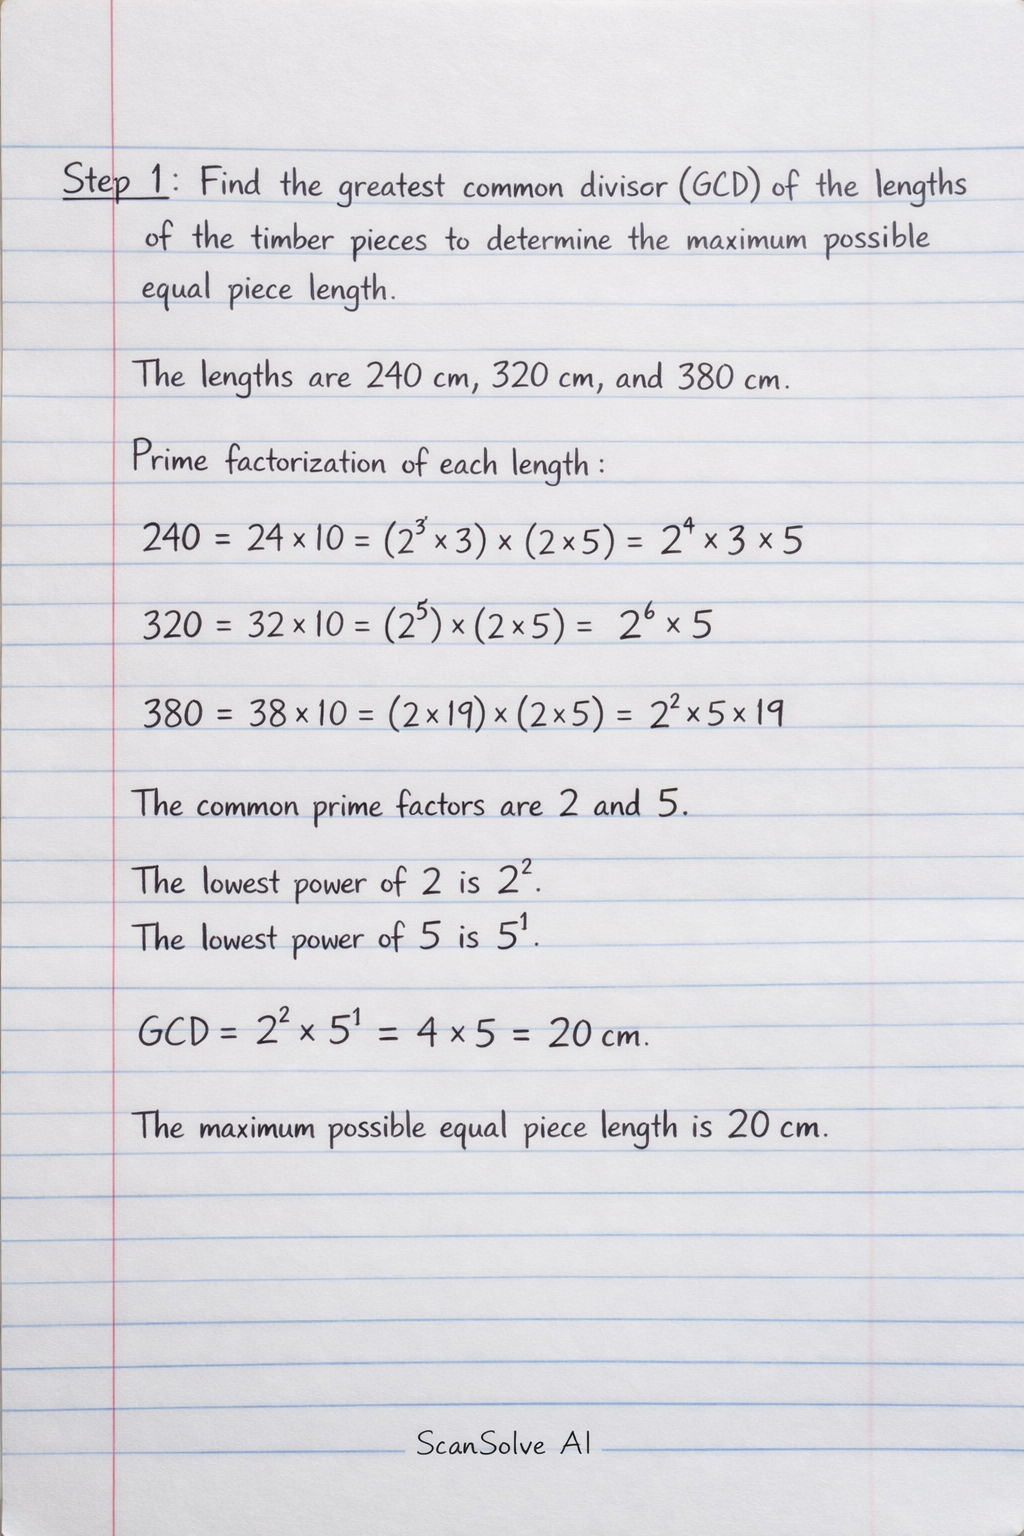 Step 1: Find the greatest common divisor (GCD) of the lengths
of the timber pieces to determine the maximum possible
equal piece length.
The lengths are 240 cm, 320 cm, and 380 cm.
Prime factorization of each length:
240 = 24 × 10 = (2³ × 3) × (2 × 5) = 2⁴ × 3 × 5
320 = 32 × 10 = (2⁵) × (2 × 5) = 2⁶ × 5
380 = 38 × 10 = (2 × 19) × (2 × 5) = 2² × 5 × 19
The common prime factors are 2 and 5.
The lowest power of 2 is 2².
The lowest power of 5 is 5¹.
GCD = 2² × 5¹ = 4 × 5 = 20 cm.
The maximum possible equal piece length is 20 cm.
ScanSolve AI